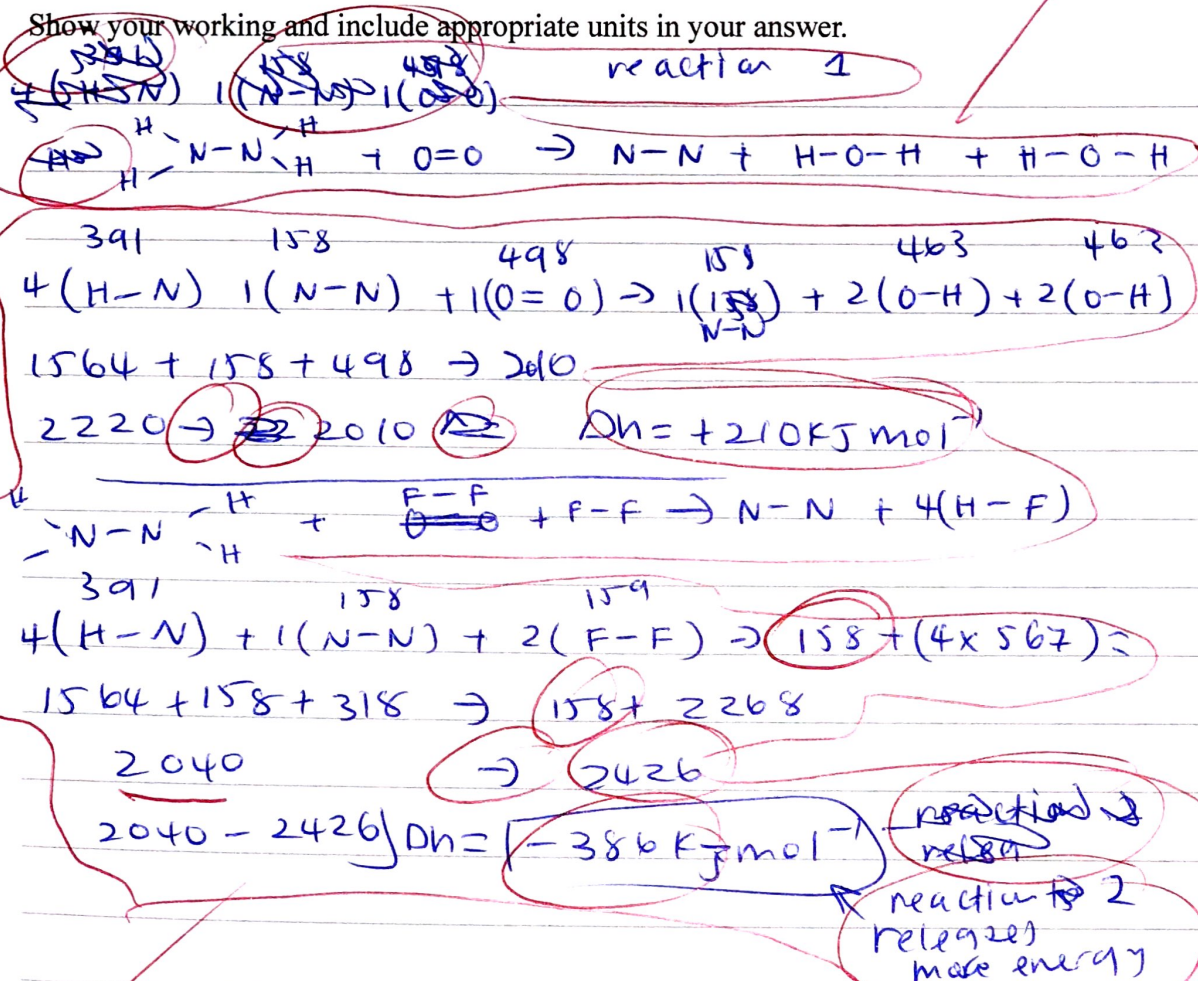 Show your working and include appropriate units in your answer.
reaction 1
H H
N-N + O=O → N-N + H-O-H + H-O-H
H H
391 158 498 158 463 463
4(H-N) 1(N-N) + 1(O=O) → 1( ) + 2(O-H) + 2(O-H)
N-N
1564 + 158 + 498 → 2010
2220 → 2010 Dh = +210KJ mol⁻
H H F-F
N-N + + F-F → N-N + 4(H-F)
H
391 158 159
4(H-N) + 1(N-N) + 2(F-F) → 158 + (4x567) =
1564 + 158 + 318 → 158 + 2268
2040 → 2426
2040 - 2426 Dh = -386 KJ mol⁻¹
reaction 2
releazes
more energy